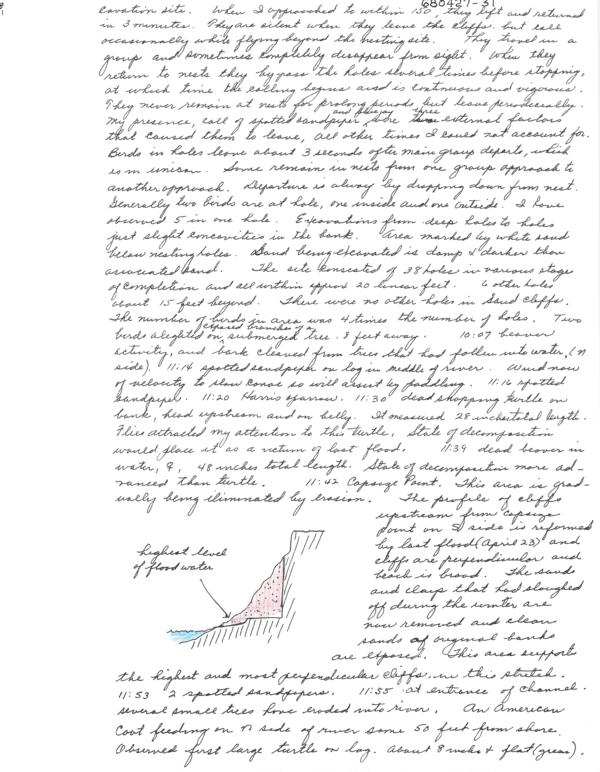 680427-31
cavation site. When I approached to within 150', they left and returned
in 3 minutes. They are silent when they leave the cliffs but call
occasionally while flying beyond the nesting site. They travel in a
group and sometimes completely disappear from sight. When they
return to nests they bypass the holes several times before stopping,
at which time the calling begins and is continuous and vigorous.
They never remain at nests for prolong periods, but leave periodically.
My presence, call of spotted sandpiper and bluejay were three external factors
that caused them to leave, all other times I could not account for.
Birds in holes leave about 3 seconds after main group departs, which
is in unison. Some remain in nests from one group approach to
another approach. Departure is alway by dropping down from nest.
Generally two birds are at hole, one inside and one outside. I have
observed 5 in one hole. Excavations from deep holes to holes
just slight concavities in the bank. Area marked by white sand
below nesting holes. Sand being excavated is damp & darker than
associated sand. The site consisted of 38 holes in various stages
of completion and all within approx 20 linear feet. 6 other holes
about 15 feet beyond. There were no other holes in sand cliffs.
The number of birds in area was 4 times the number of holes. Two
birds alighted on exposed branches of a submerged tree 8 feet away. 10:07 beaver
activity, and bark cleaned from trees that had fallen into water, (N
side). 11:14 spotted sandpiper on log in middle of river. Wind now
of velocity to slow canoe so will assist by paddling. 11:16 spotted
sandpiper. 11:20 Harris sparrow. 11:30 dead snapping turtle on
bank, head upstream and on belly. It measured 28 inches total length.
Flies attracted my attention to this turtle. State of decomposition
would place it as a victim of last flood. 11:39 dead beaver in
water, ♀, 48 inches total length. State of decomposition more ad-
vanced than turtle. 11:42 Capsize Point. This area is grad-
ually being iliminated by erosion. The profile of cliffs
upstream from capsize
point on S side is reformed
by last flood (April 23) and
cliffs are perpendicular and
beach is broad. The sands
and clays that had sloughed
off during the winter are
now removed and clean
sands of original banks
are exposed. This area supports
highest level
of flood water
the highest and most perpendicular cliffs in this stretch.
11:53 2 spotted sandpipers. 11:55 at entrance of Channel.
several small trees have eroded into river. An American
Coot feeding on N side of river some 50 feet from shore.
Observed first large turtle on log. About 8 inches & flat (gras).